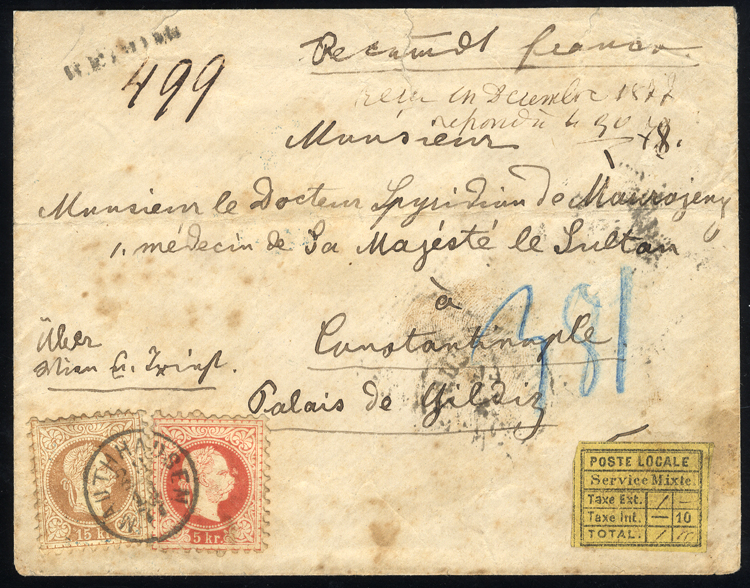 RECOM
499
Recomdt franco.
reçu en Decembre 1877
repondu le 30
Monsieur
78.
Monsieur le Docteur Spyridion de Maurojeny
1. médecin de Sa Majésté le Sultan
à
Constantinople
Palais de Yildiz
Über
Wien u. Triest.
781
MAUTHHAUSEN
15 kr.
5 kr.
POSTE LOCALE
Service Mixte.
Taxe Ext. 1 –
Taxe Int. – 10
TOTAL. 1 10